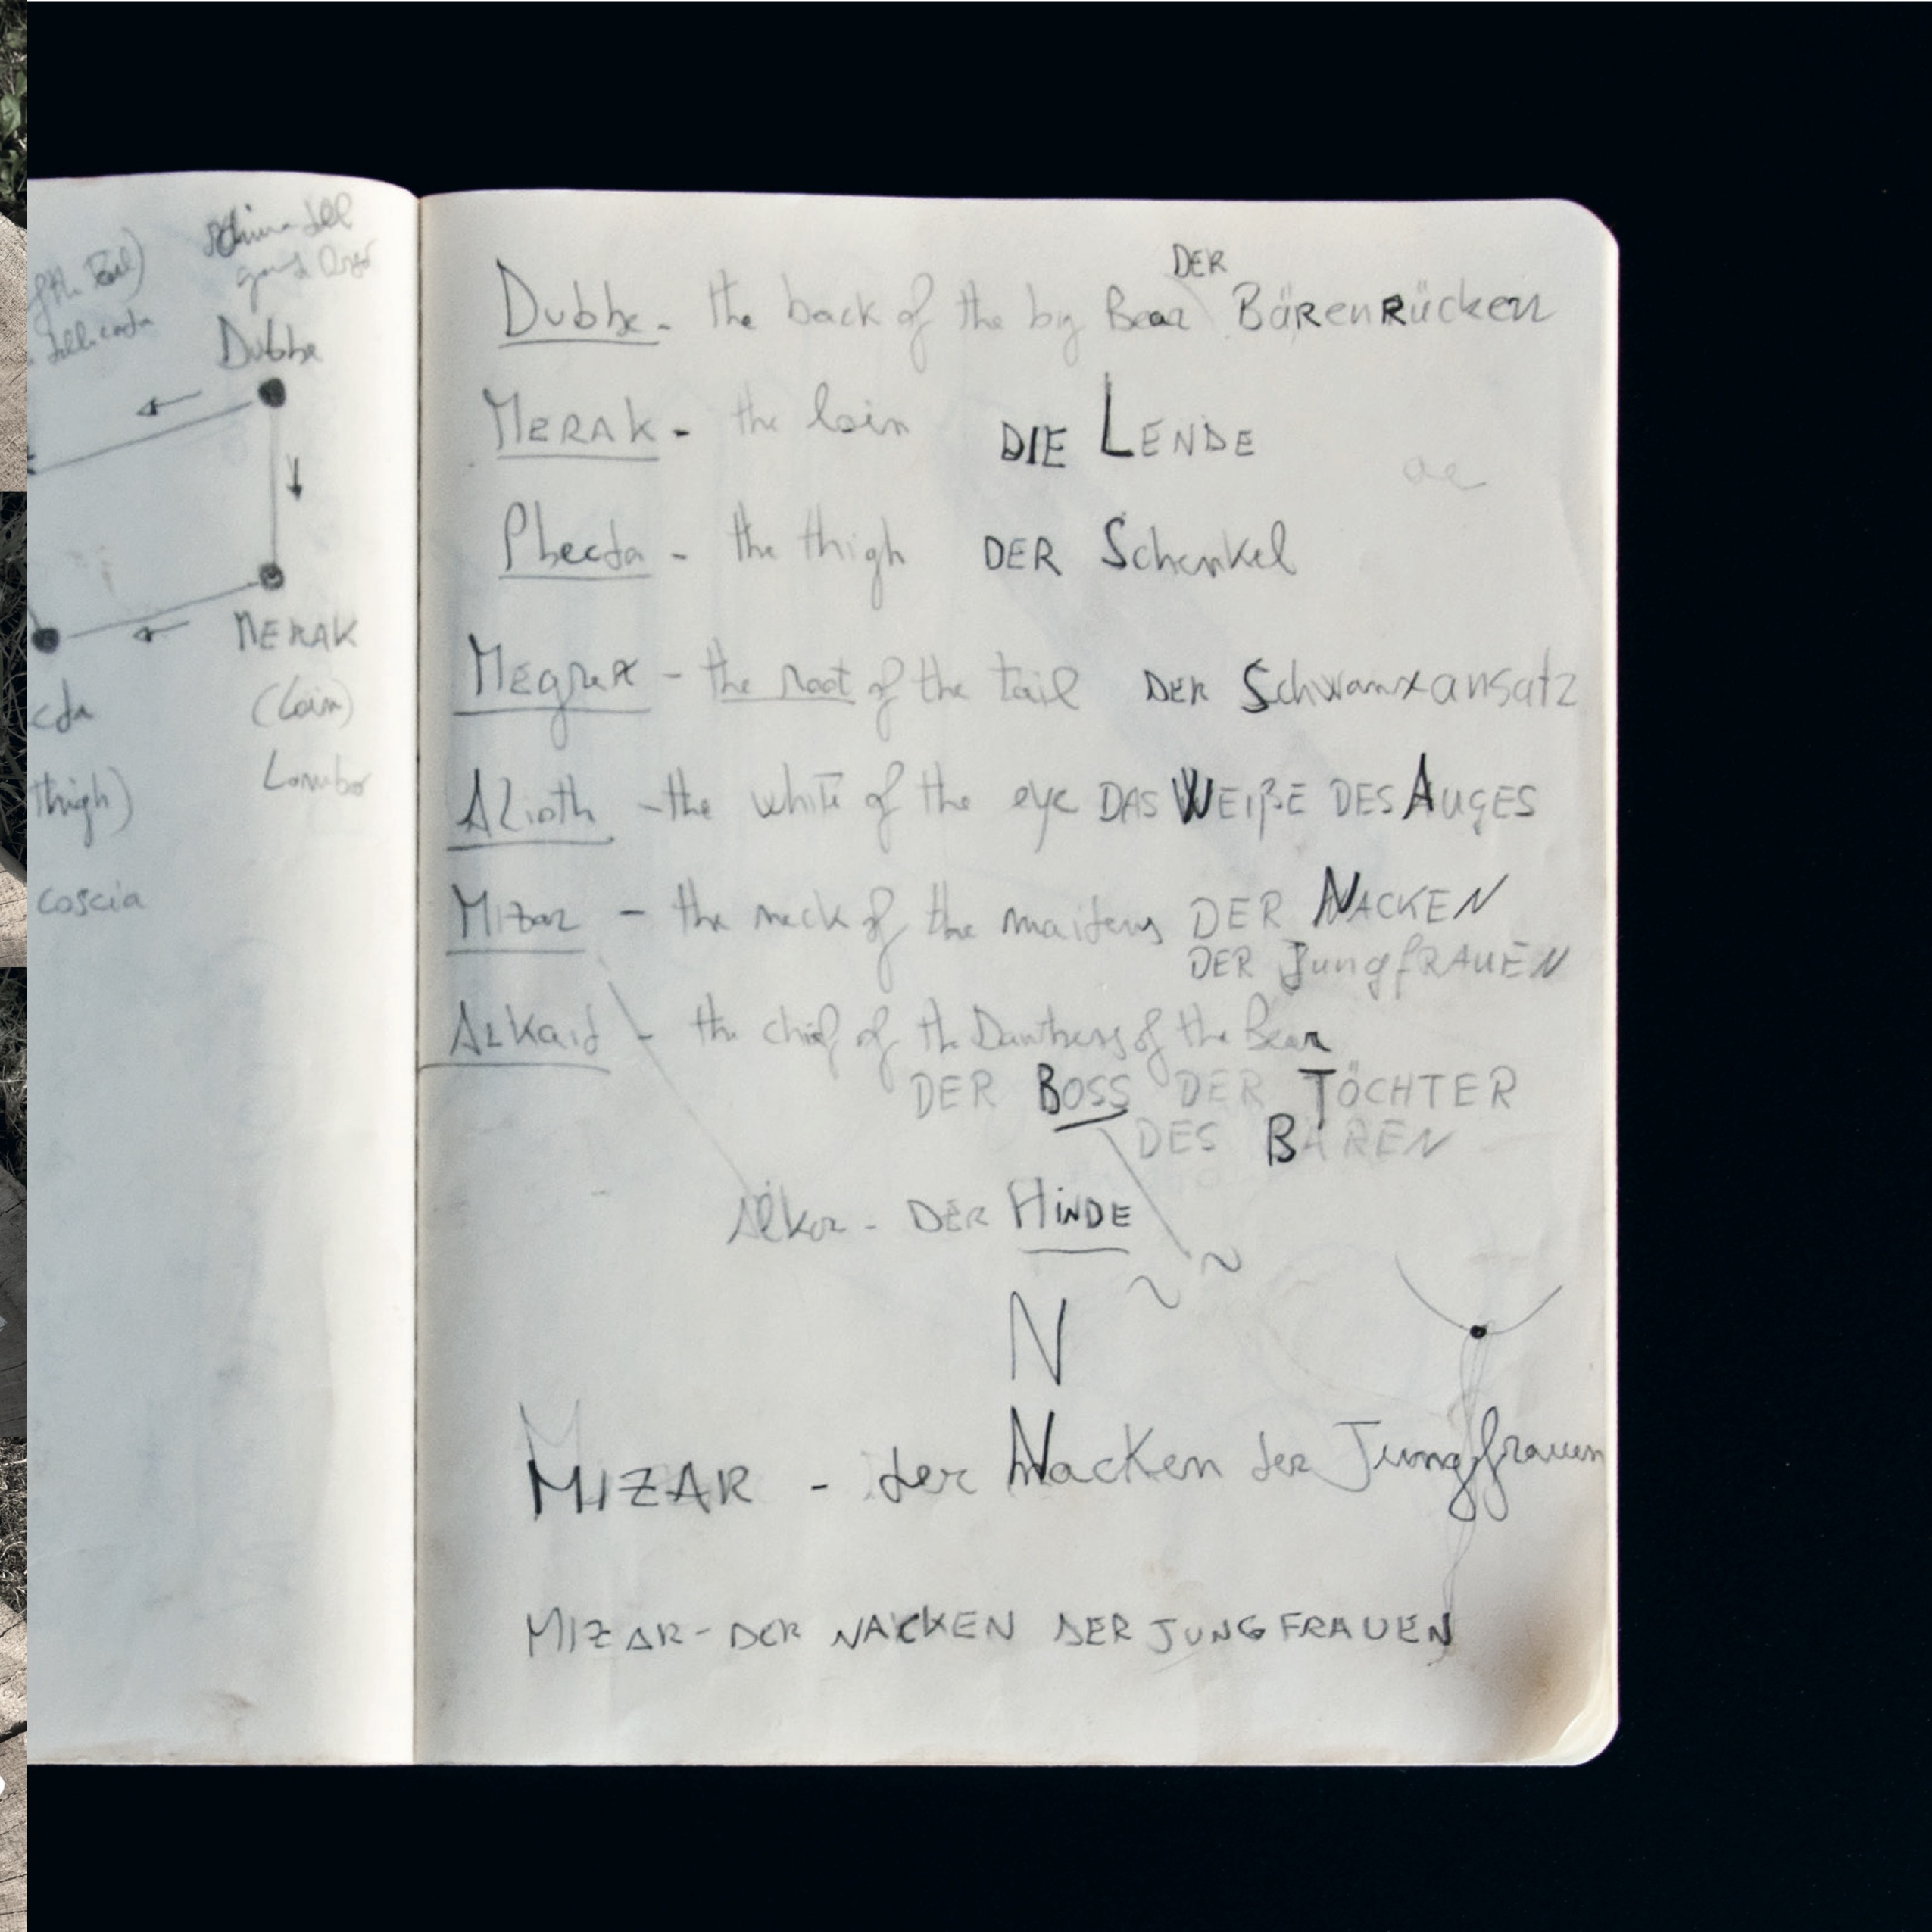 of the Tail)
schiena dell
Dubhe
MERAK
cda
(Loin)
thigh)
Lombo
coscia
DER
Dubhe - the back of the big Bear Bärenrücken
MERAK - the loin DIE LENDE
ae
Phecda - the thigh DER Schenkel
Megrez - the root of the tail DER Schwanzansatz
Alioth - the white of the eye DAS WEIßE DES AUGES
Mizar - the neck of the maidens DER NACKEN
DER JungfRAUEN
ALKaid - the chief of the Dauthers of the Bear
DER BOSS DER TÖCHTER
DES BÄREN
Alkor - DER HiNDE
N
MIZAR - der Nacken der Jungfrauen
MIZAR - DER NACKEN DER JUNGFRAUEN